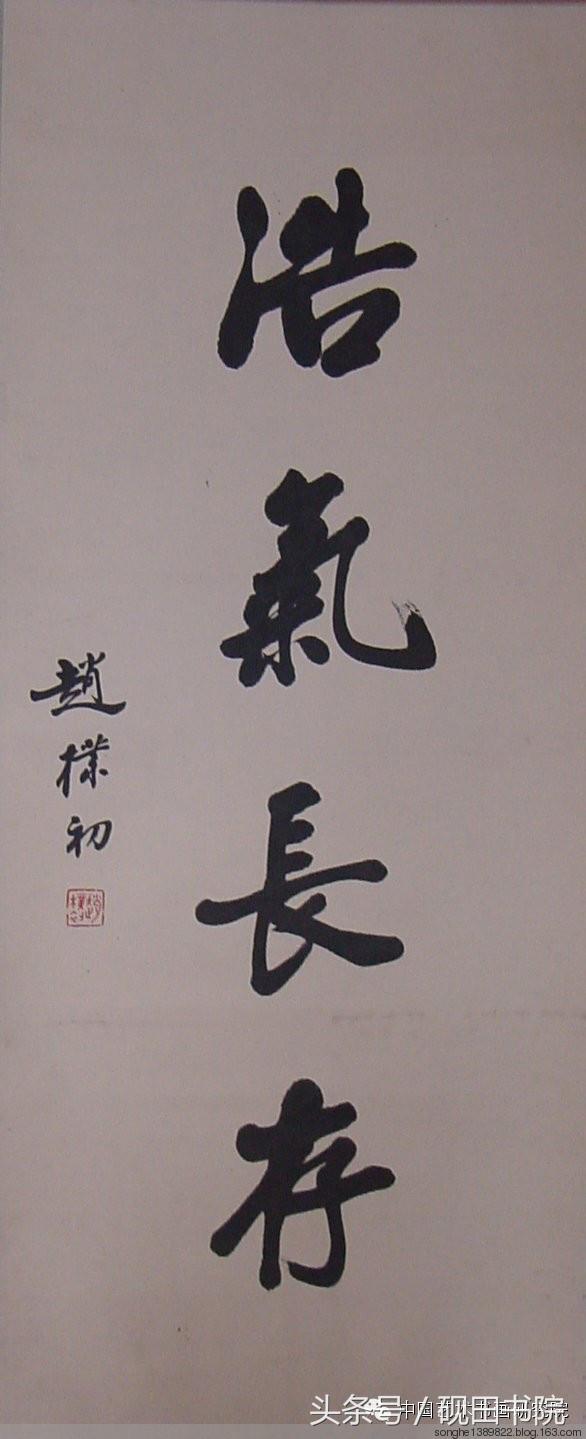 浩氣長存
趙樸初
头条号/砚田书院
songhe1389822.blog.163.com